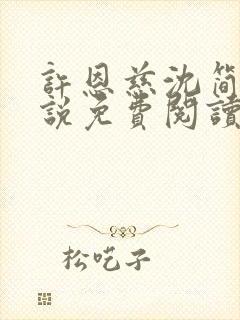 許恩慈沈簡
說免費閱讀
松吃子